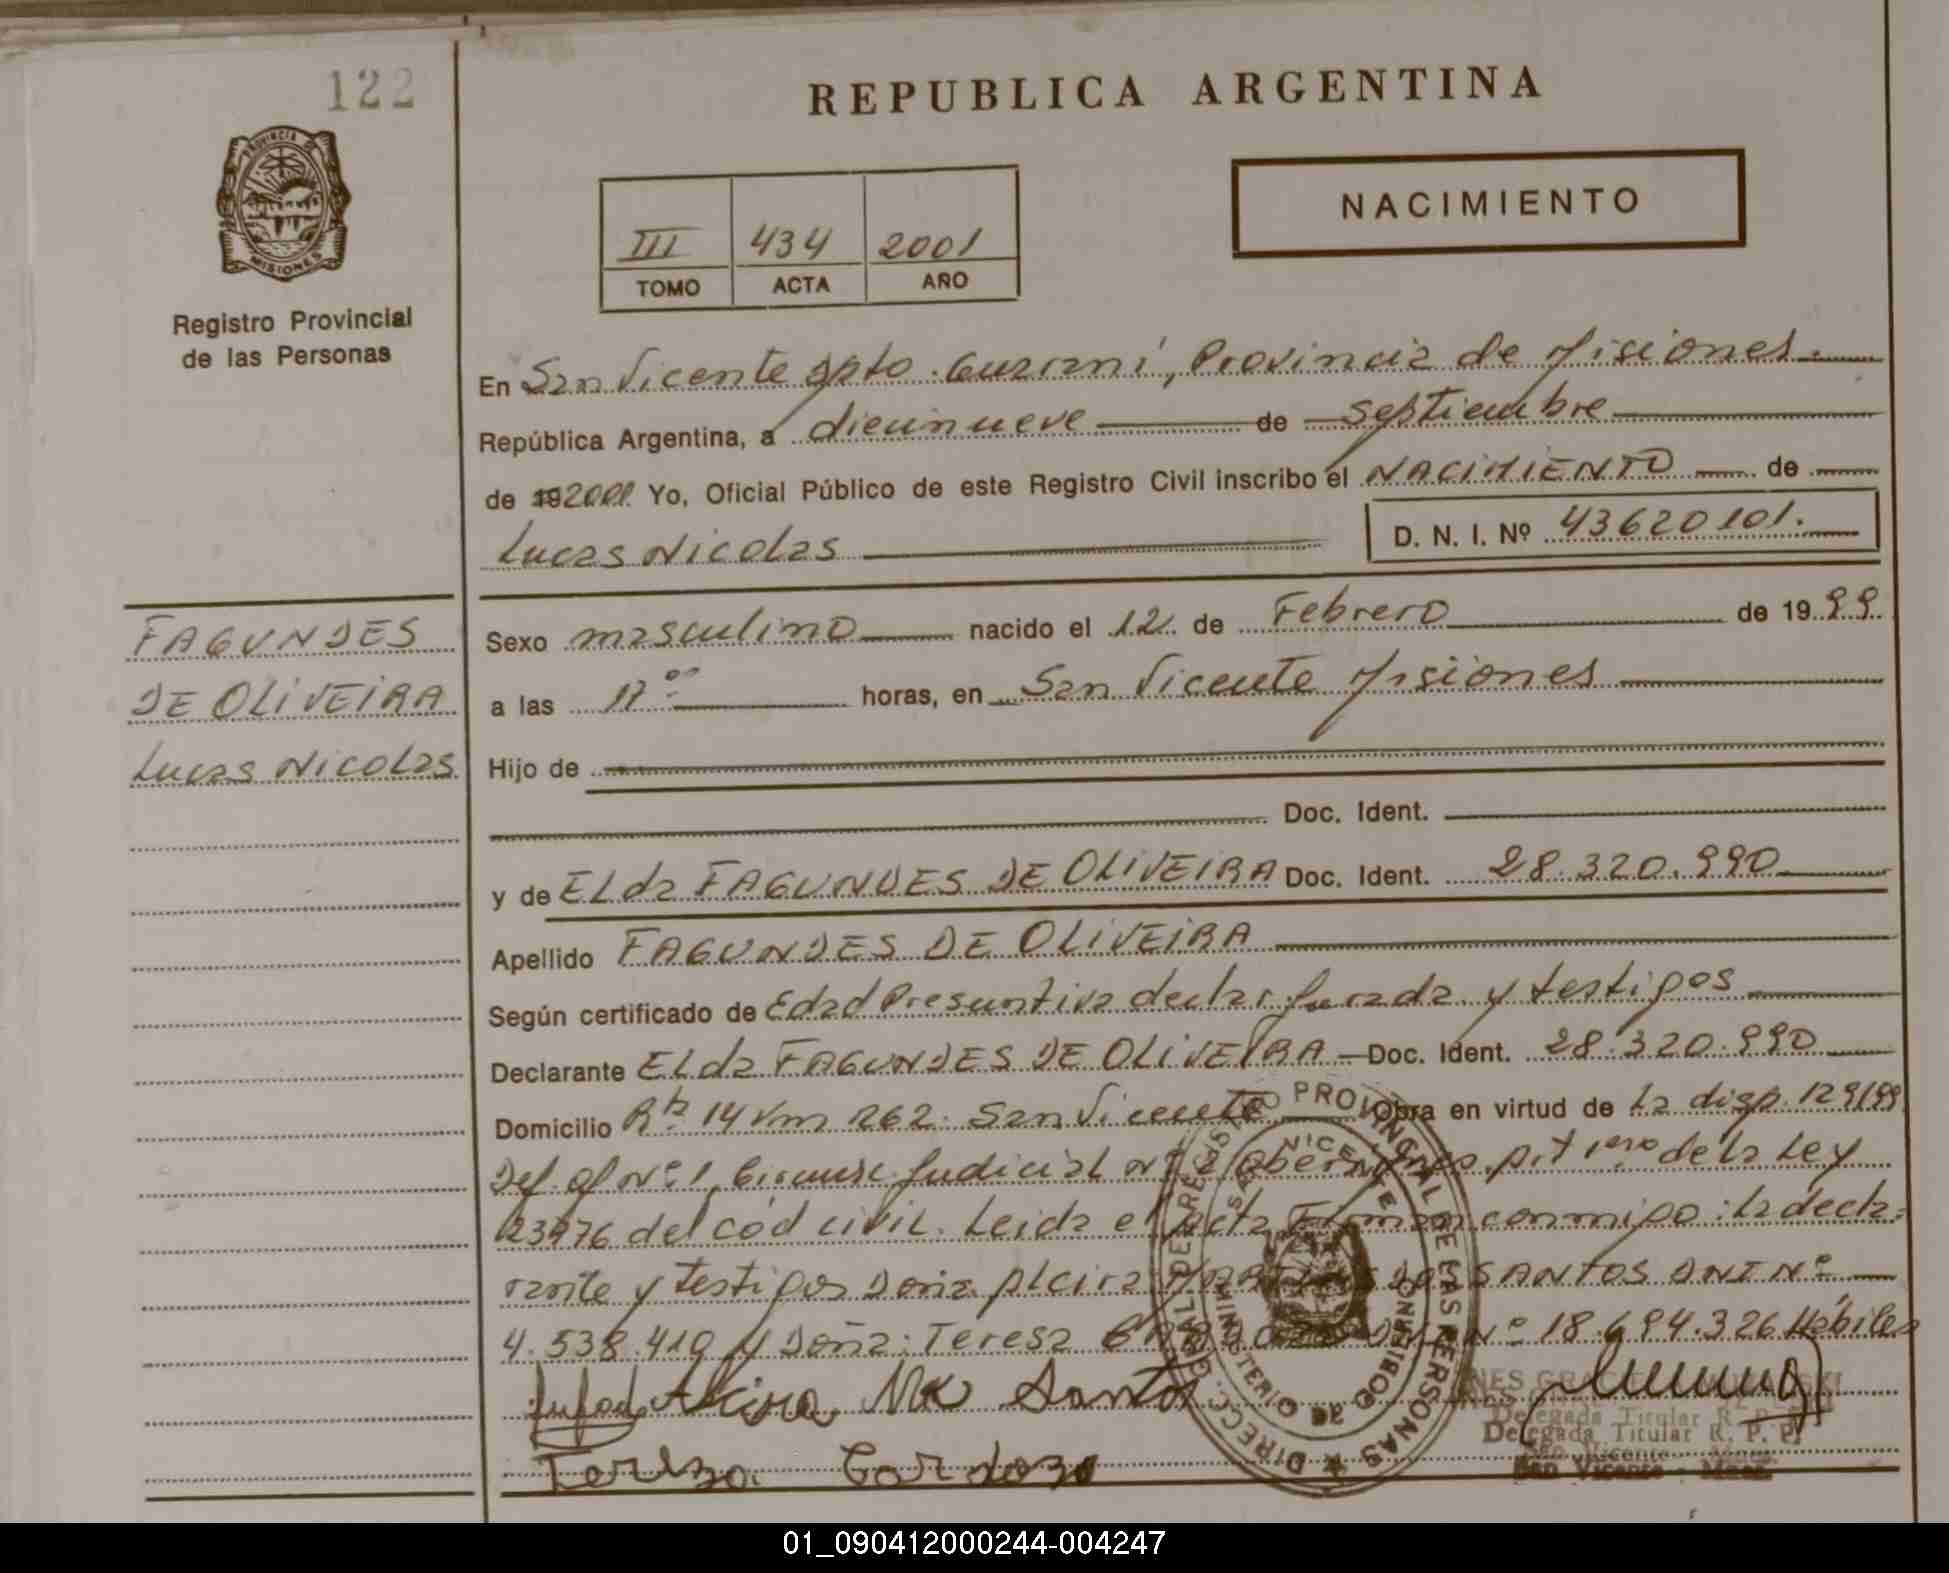 122
REPUBLICA ARGENTINA
PROVINCIA DE
MISIONES
Registro Provincial
de las Personas
III 434 2001
TOMO ACTA AÑO
NACIMIENTO
En San Vicente Dpto. Guarani, Provincia de Misiones.
República Argentina, a diecinueve de septiembre
de 192001 Yo, Oficial Público de este Registro Civil inscribo el NACIMIENTO de
Lucas Nicolas
D. N. I. Nº 43620101.
FAGUNDES
DE OLIVEIRA
Lucas Nicolas
Sexo masculino nacido el 12 de Febrero de 1999.
a las 17 horas, en San Vicente Misiones
Hijo de
Doc. Ident.
y de ELda FAGUNDES DE OLIVEIRA Doc. Ident. 28.320.990
Apellido FAGUNDES DE OLIVEIRA
Según certificado de Edad Presuntiva declar. Jurada y testigos
Declarante ELda FAGUNDES DE OLIVEIRA Doc. Ident. 28.320.990
Domicilio Rta 14 Km 262. San Vicente Obra en virtud de La disp. 129/99
Def. of Nº 1, Judicial de la Ley
23976 del cód civil. Leida el Acta Firman conmigo: la decla=
rante y testigos Doña SANTOS DNI Nº
4.538.419 y Doña: Teresa Nº 18.694.326 Hábiles
Santos
Cardozo
DIRECC. GRAL DE REGISTRO PROVINCIAL DE LAS PERSONAS
SAN VICENTE
MINISTERIO DE GOBIERNO
Delegada Titular R. P. P.
San Vicente - Mnes.
01_090412000244-004247